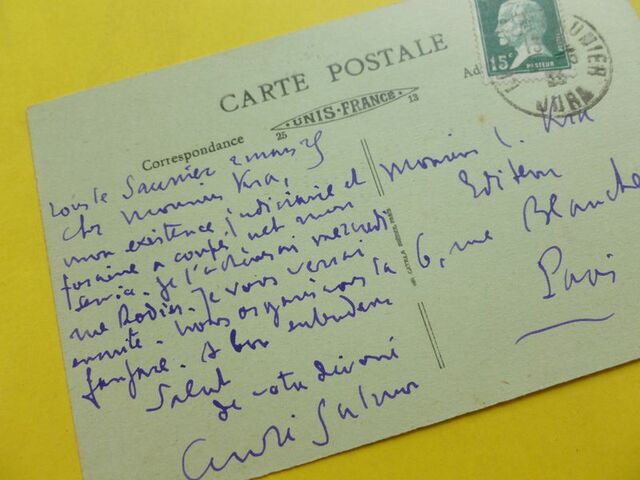 CARTE POSTALE
15c
PASTEUR
SAUNIER
JURA
UNIS-FRANCE
25 13
Correspondance
Ad
Lons le Saunier 2 mars 25
Cher Monsieur Kra,
mon existence judiciaire et
foraine a coupé net mon
service. Je l'achèverai mercredi
rue Rodier. Je vous verrai
ensuite. Nous organiserons la
fanfare. A bon entendeur
Salut
de votre dévoué
André Salmon
Monsieur L. Kra
Editeur
6, rue Blanche
Paris